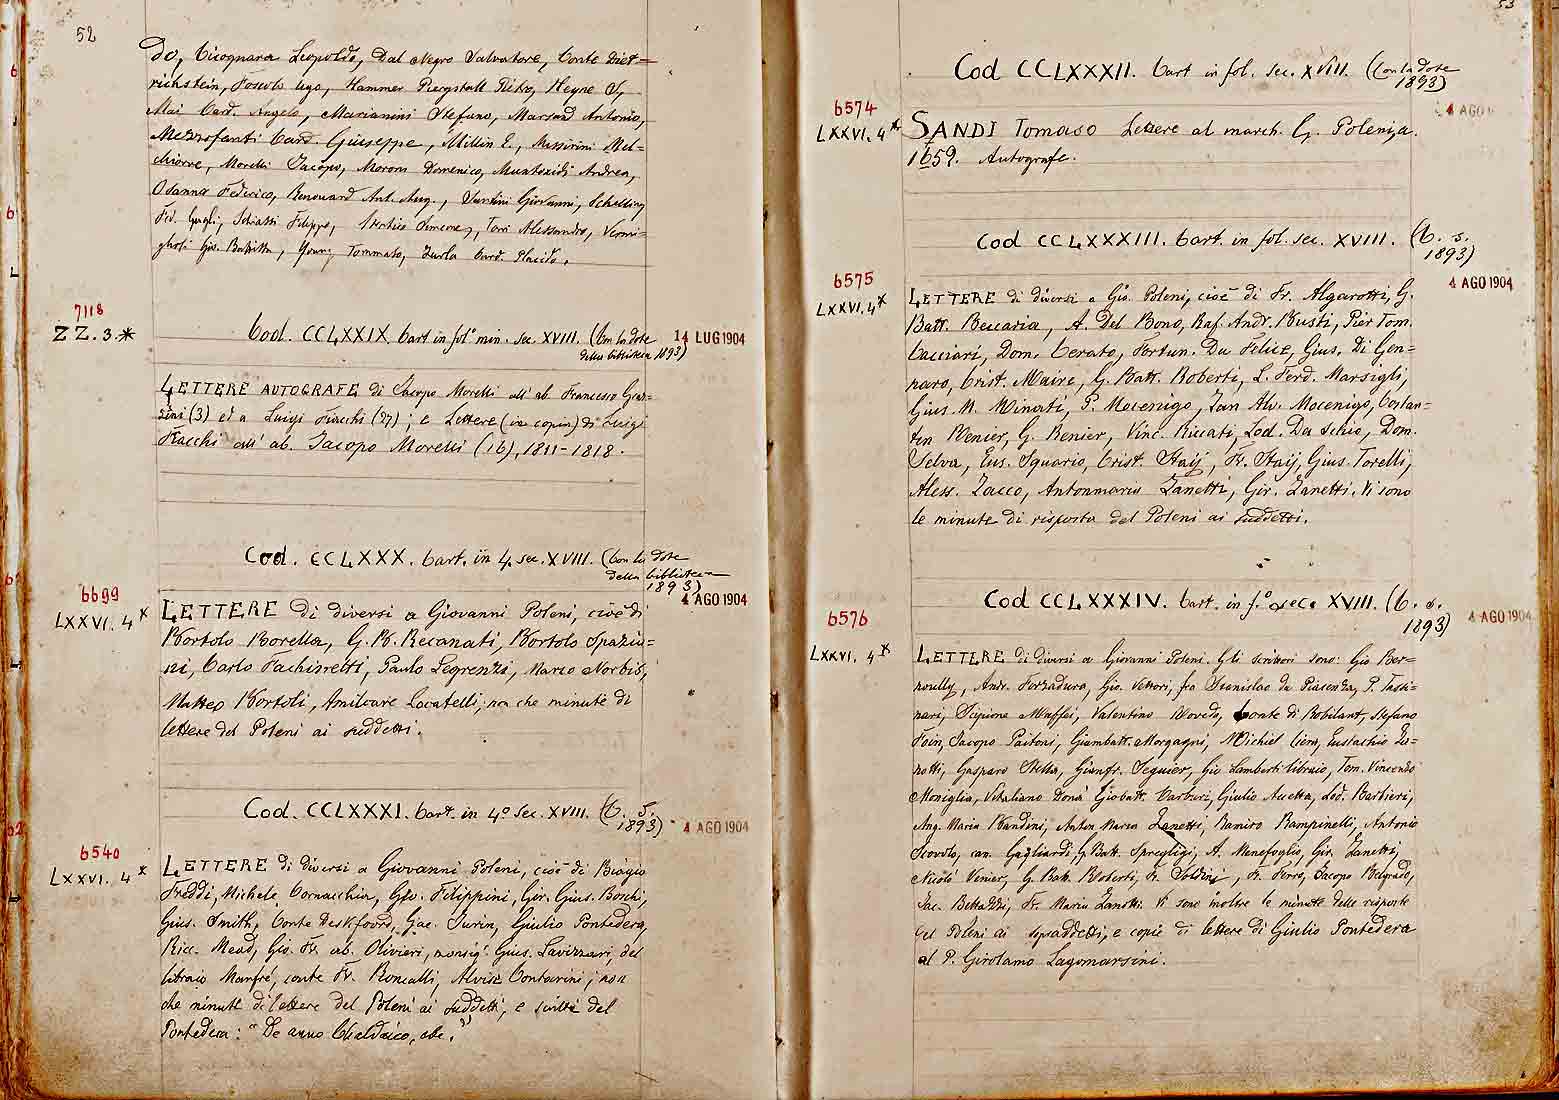 52
do, Cicognara Leopoldo, Dal Negro Salvatore, Conte Diet=
richstein, Foscolo Ugo, Hammer Purgstall Pietro, Heyne
Mai Card. Angelo, Marianini Stefano, Marsand Antonio,
Mezzofanti Card. Giuseppe, Millin E., Missirini Mel=
chiorre, Morelli Jacopo, Moroni Domenico, Mustoxidi Andrea,
Odanna Federico, Renouard Ant. Aug., Santini Giovanni, Schelling
Fed. Gugl., Schiassi Filippo, Simeone, Torri Alessandro, Vermi=
glioli Gio. Battista, Young Tommaso, Zurla Card. Placido.
7118
ZZ.3.*
Cod. CCLXXIX. Cart in fol° min. sec. XVIII. (Con la dote
della biblioteca 1893)
14 LUG 1904
LETTERE AUTOGRAFE di Jacopo Morelli all' ab. Francesco
(3) ed a Luigi Fiacchi (27); e Lettere (in copia) di Luigi
Fiacchi all' ab. Jacopo Morelli (16), 1811-1818.
Cod. CCLXXX. Cart. in 4. sec. XVIII. (Con la dote
della biblioteca
1893)
6699
LXXVI. 4*
4 AGO 1904
LETTERE di diversi a Giovanni Poleni, cioè di
Bortolo Borella, G. B. Recanati, Bortolo Spazia=
ni, Carlo Fachinetti, Paulo Legrenzi, Marco Norbis,
Matteo Bortoli, Amilcare Locatelli; non che minute di
lettere del Poleni ai suddetti.
Cod. CCLXXXI. Cart. in 4° sec. XVIII. (C. s.
1893)
4 AGO 1904
6540
LXXVI. 4*
LETTERE di diversi a Giovanni Poleni, cioè di Biagio
Freddi, Michele Cornacchin, Gio. Filippini, Gir. Gius. Boschi,
Gius. Smith, Conte Deskfoord, Jac. Jurin, Giulio Pontedera,
Ricc. Mead, Gio. Fr. ab. Olivieri, monsig. Gius. Lavizzari, del
libraio Manfrè, conte Fr. Roncalli, Alvise Contarini; non
che minute di lettere del Poleni ai suddetti, e scritto del
Pontedera: "De anno Chaldaico, etc."
53
Cod CCLXXXII. Cart in fol. sec. XVIII. (Con la dote
1893)
6574
LXXVI. 4*
4 AGO
SANDI Tomaso Lettere al march. G. Poleni, a.
1659. Autografe.
Cod CCLXXXIII. Cart. in fol. sec. XVIII. (C. s.
1893)
6575
LXXVI. 4*
4 AGO 1904
LETTERE di diversi a Gio. Poleni, cioè di Fr. Algarotti, G.
Batt. Beccaria, A. Del Bono, Raf. Andr. Busti, Pier Tom.
Cacciari, Dom. Cerato, Fortun. Da Felice, Gius. Di Gen=
naro, Crist. Maire, G. Batt. Roberti, L. Ferd. Marsigli,
Gius. M. Minati, P. Mocenigo, Zan Alv. Mocenigo, Costan=
tin Renier, G. Renier, Vinc. Riccati, Lod. Da Schio, Dom.
Selva, Eus. Squario, Crist. Staÿ, Fr. Staÿ, Gius. Torelli,
Aless. Zacco, Antonmaria Zanetti, Gir. Zanetti. Vi sono
le minute di risposta del Poleni ai suddetti.
Cod CCLXXXIV. Cart. in f.° sec. XVIII. (C. s.
1893)
6576
LXXVI. 4*
4 AGO 1904
LETTERE di diversi a Giovanni Poleni. Gli scrittori sono: Gio Ber=
noully, Andr. Forzadura, Gio. Vettori, fra Stanislao da Piacenza, P. Tassi=
nari, Scipione Maffei, Valentino Roveda, Conte di Robilant, Stefano
Foin, Jacopo Paitoni, Giambatt. Morgagni, Michiel Ciera, Eustachio Za=
notti, Gasparo Stella, Gianfr. Seguier, Gio Lamberti libraio, Tom. Vincenzo
Moniglia, Vitaliano Donà Giobatt. Carburi, Giulio Accetta, Lod. Barbieri,
Ang. Maria Bandini, Anton Maria Zanetti, Ramiro Rampinelli, Antonio
Scovolo, can. Gagliardi, G. Batt. Spregligi, A. Menefoglio, Gir. Zanetti,
Nicolò Venier, G. Batt. Roberti, Fr. Soldini, Fr. Ferro, Jacopo Belgrado,
Jac. Bettazzi, Fr. Maria Zanotti. Vi sono inoltre le minute delle risposte
del Poleni ai sopraddetti, e copie di lettere di Giulio Pontedera
al P. Girolamo Lagomarsini.